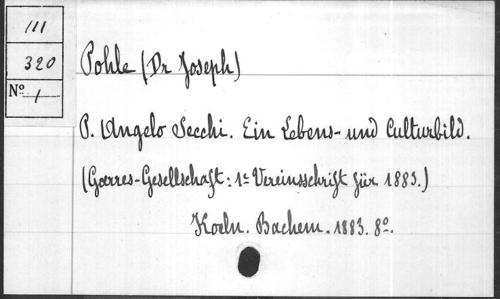 111
320
Nº 1
Pohle (Dr Joseph)
P. Angelo Secchi. Ein Lebens- und Culturbild.
(Goerres-Gesellschaft: 1e Vereinsschrift für 1883.)
Koeln. Bachem. 1883. 8º.